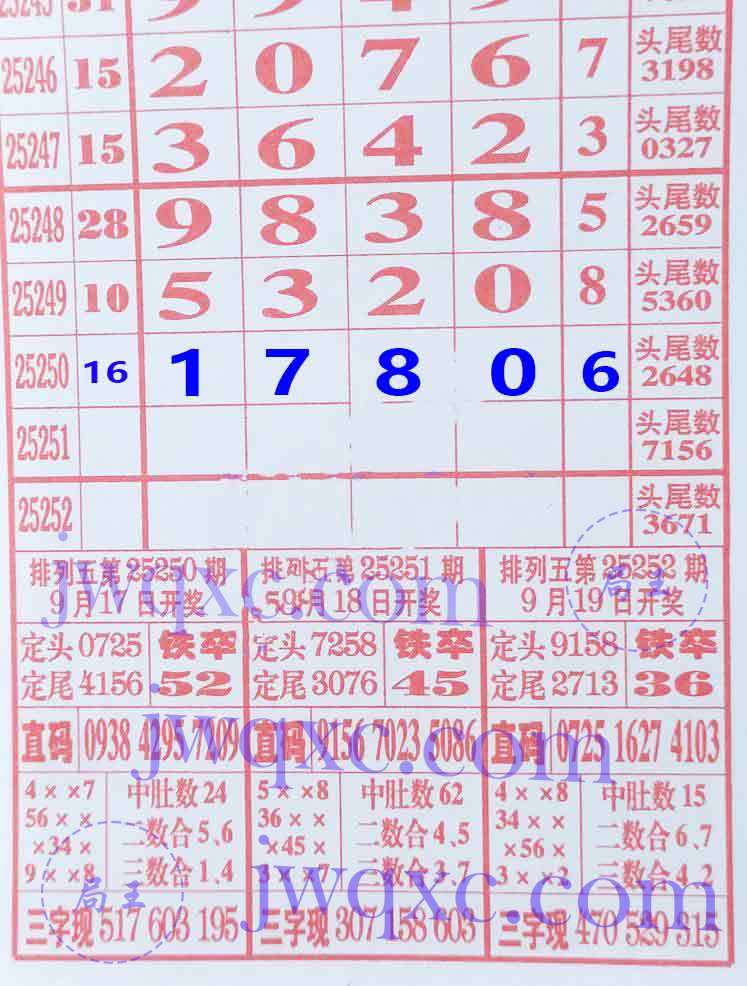 25245 31 9 9 4 9
25246 15 2 0 7 6 7 头尾数 3198
25247 15 3 6 4 2 3 头尾数 0327
25248 28 9 8 3 8 5 头尾数 2659
25249 10 5 3 2 0 8 头尾数 5360
25250 16 1 7 8 0 6 头尾数 2648
25251 头尾数 7156
25252 头尾数 3671
排列五第25250期 排列五第25251期 排列五第25252期
9月17日开奖 9月18日开奖 9月19日开奖
jwqxc.com
局王
定头0725 铁卒 定头7258 铁卒 定头9158 铁卒
定尾4156 52 定尾3076 45 定尾2713 36
直码 0938 4295 7209 直码 9156 7023 5086 直码 0725 1627 4103
jwqxc.com
4××7 中肚数24 5××8 中肚数62 4××8 中肚数15
56×× 二数合5、6 36×× 二数合4、5 34×× 二数合6、7
×34× ×45× ×56×
9××8 三数合1、4 3××7 三数合3、7 3××2 三数合4、2
局王
jwqxc.com
三字现 517 603 195 三字现 307 158 603 三字现 470 529 315